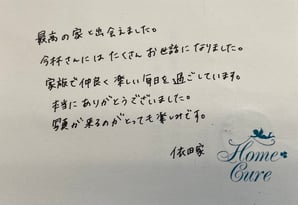 最高の家と出会えました。
今林さんにはたくさんお世話になりました。
家族で仲良く楽しい毎日を過ごしています。
本当にありがとうございました。
写真が来るのがとっても楽しみです。
依田家
Home
Cure